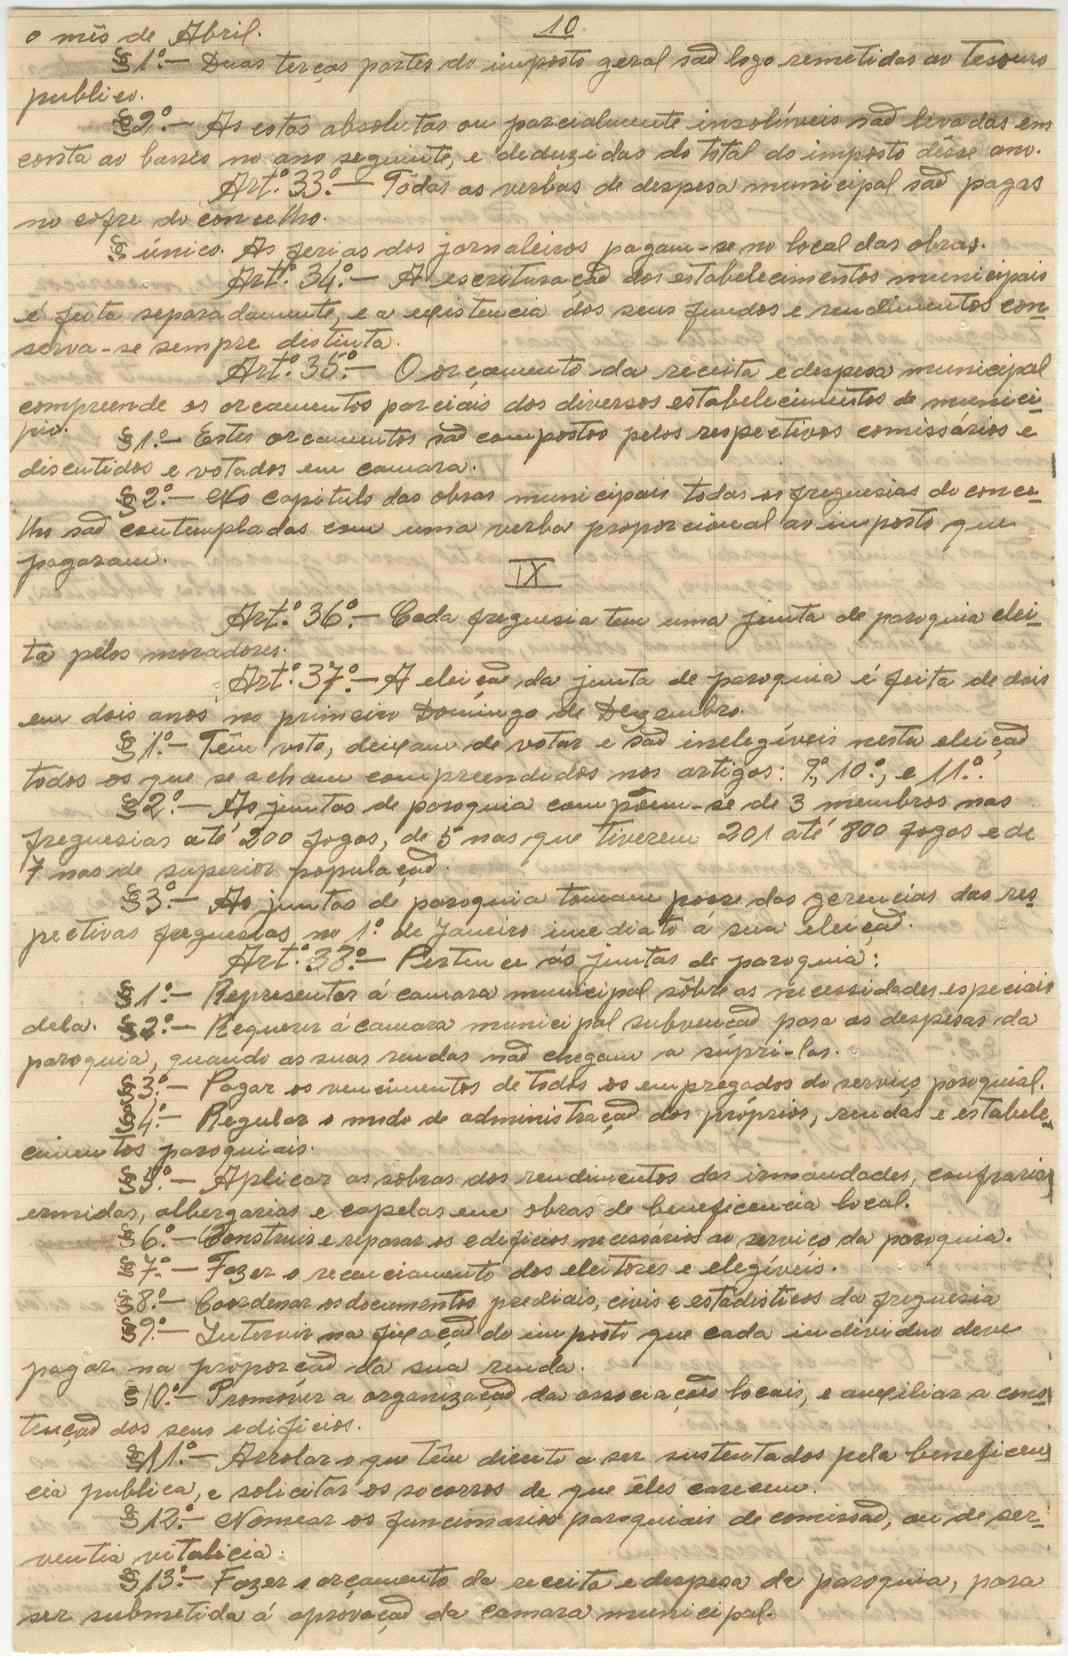 10
o mês de Abril.
§1º.— Duas terças partes do imposto geral são logo remetidas ao tesouro
publico.
§2º.— As cotas absolutas ou parcialmente insolúveis são levadas em
conta ao banco no ano seguinte, e deduzidas do total do imposto dêsse ano.
Artº. 33º.— Tôdas as verbas de despesa municipal são pagas
no cofre do concelho.
§ único. As ferias dos jornaleiros pagam-se no local das obras.
Artº. 34º.— A escrituração dos estabelecimentos municipais
é feita separadamente, e a existencia dos seus fundos e rendimentos con-
serva-se sempre distinta.
Artº. 35º.— O orçamento da receita e despesa municipal
compreende os orçamentos parciais dos diversos estabelecimentos do municí-
pio.
§1º.— Estes orçamentos são compostos pelos respectivos comissários e
discutidos e votados em camara.
§2º.— No capitulo das obras municipais todas as freguesias do conce-
lho são contempladas com uma verba proporcional ao imposto que
pagaram.
IX
Artº. 36º.— Cada freguesia tem uma junta de paroquia elei-
ta pelos moradores.
Artº. 37º.— A eleição da junta de paroquia é feita de dois
em dois anos no primeiro Domingo de Dezembro.
§1º.— Têm voto, deixam de votar e são inelegíveis nesta eleição
todos os que se acham compreendidos nos artigos: 9º., 10º., e 11º.
§2º.— As juntas de paroquia compõem-se de 3 membros nas
freguesias até 200 fogos, de 5 nas que tiverem 201 até 800 fogos e de
7 nas de superior população.
§3º.— As juntas de paroquia tomam posse das gerencias das res-
pectivas freguesias no 1º. de Janeiro imediato á sua eleição.
Artº. 38º.— Pertence ás juntas de paroquia:
§1º.— Representar á camara municipal sôbre as necessidades especiais
dela. §2º.— Requerer á camara municipal subvenção para as despesas da
paroquia, quando as suas rendas não chegam a supri-las.
§3º.— Pagar os vencimentos de todos os empregados do serviço paroquial.
§4º.— Regular o modo de administração dos próprios, rendas e estabele-
cimentos paroquiais.
§5º.— Aplicar as sobras dos rendimentos das irmandades, confrarias,
ermidas, albergarias e capelas em obras de beneficencia local.
§6º.— Construir e reparar os edificios necessários ao serviço da paroquia.
§7º.— Fazer o recenciamento dos eleitores e elegíveis.
§8º.— Coordenar os documentos prediais, civis e estadisticos da freguesia
§9º.— Intervir na fixação do imposto que cada individuo deve
pagar na proporção da sua renda.
§10º.— Promover a organização da associações locais, e auxiliar a cons-
trução dos seus edificios.
§11º.— Arrolar o que têm direito a ser sustentados pela beneficen-
cia publica, e solicitar os socorros de que êles carecem.
§12º.— Nomear os funcionarios paroquiais de comissão, ou de ser-
ventia vitalicia.
§13º.— Fazer o orçamento da receita e despesa da paroquia, para
ser submetida á aprovação da camara municipal.